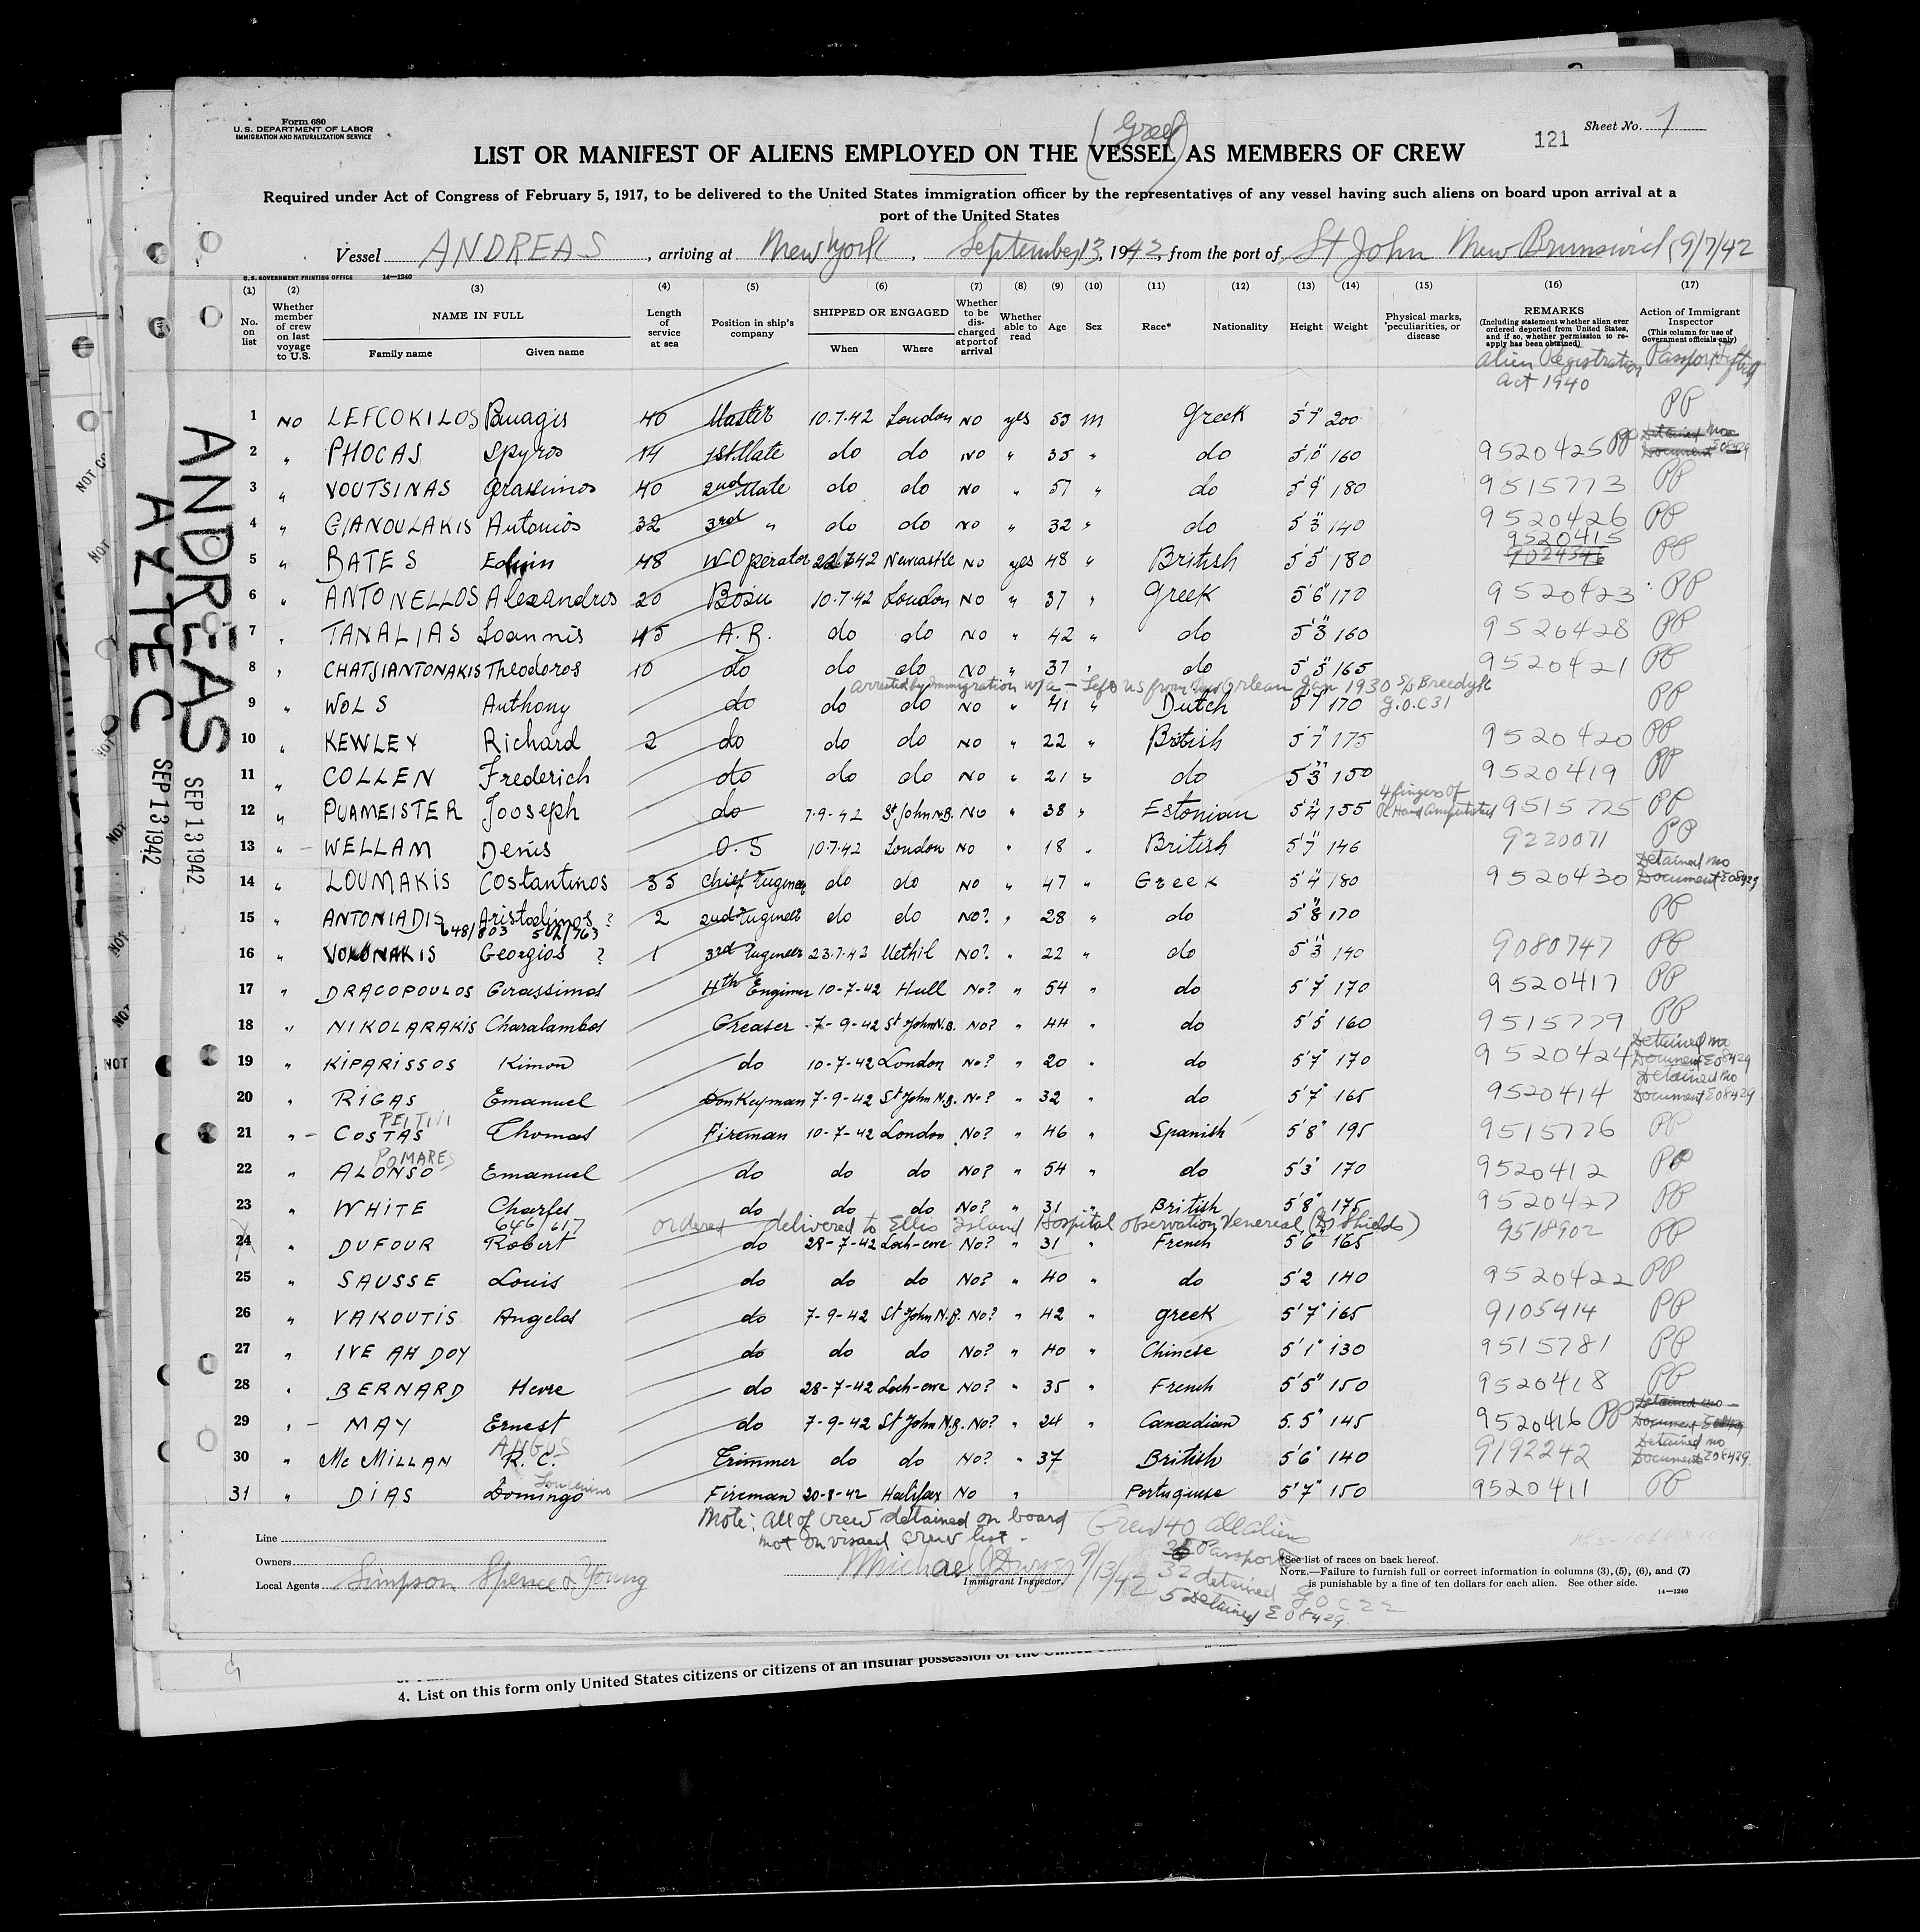 Form 680
U.S. DEPARTMENT OF LABOR
IMMIGRATION AND NATURALIZATION SERVICE
(Greek)
121
Sheet No. 1
LIST OR MANIFEST OF ALIENS EMPLOYED ON THE VESSEL AS MEMBERS OF CREW
Required under Act of Congress of February 5, 1917, to be delivered to the United States immigration officer by the representatives of any vessel having such aliens on board upon arrival at a
port of the United States
Vessel ANDREAS, arriving at New York, September 13, 1942, from the port of St John New Brunswick (9/7/42
U.S. GOVERNMENT PRINTING OFFICE 14—1240
(1) (2) (3) (4) (5) (6) (7) (8) (9) (10) (11) (12) (13) (14) (15) (16) (17)
No. on list
Whether member of crew on last voyage to U.S.
NAME IN FULL
Family name Given name
Length of service at sea
Position in ship's company
SHIPPED OR ENGAGED
When Where
Whether to be discharged at port of arrival
Whether able to read
Age
Sex
Race*
Nationality
Height
Weight
Physical marks, peculiarities, or disease
REMARKS
(Including statement whether alien ever ordered deported from United States, and if so, whether permission to reapply has been obtained)
Action of Immigrant Inspector
(This column for use of Government officials only)
Alien Registration
Act 1940
1 NO LEFCOKILOS 40 Master 10.7.42 London NO yes 53 m Greek 5'7" 200 PP
2 " PHOCAS Spyros 14 1st Mate do do NO " 35 " do 160 9520425 PP Detained no Document E08429
3 " VOUTSINAS Grassimos 40 2nd Mate do do NO " 57 " do 5'9" 180 9515773 PP
4 " GIANOULAKIS Antonios 32 3rd " do do NO " 32 " do 5'3" 140 9520426 PP
9520415
5 " BATES Edwin 48 W Operator 22.7.42 Newcastle NO yes 48 " British 5'5" 180 9024346 PP
6 " ANTONELLOS Alexandros 20 Bosn 10.7.42 London NO " 37 " Greek 5'6" 170 9520423 PP
7 " TANALIAS Ioannis 45 A.B. do do NO " 42 " do 5'3" 160 9520428 PP
8 " CHATSIANTONAKIS Theodoros 10 do do do NO " 37 " do 5'3" 165 9520421 PP
arrested by Immigration w/a - Left US from New Orlean Jan 1930 S/S Breedyk
9 " WOLS Anthony do do do NO " 41 " Dutch 5'7" 170 G.O.C 31 PP
10 " KEWLEY Richard 2 do do do NO " 22 " British 5'7" 175 9520420 PP
11 " COLLEN Frederich do do do NO " 21 " do 5'3" 150 9520419 PP
4 fingers of
12 " PUAMEISTER Jooseph do 7-9-42 St John N.B. NO " 38 " Estonian 5'4" 155 R Hand amputated 9515775 PP
13 " WELLAM Denis O.S 10.7.42 London NO " 18 " British 5'7" 146 9220071 PP
14 " LOUMAKIS Costantinos 35 Chief Engineer do do NO " 47 " Greek 5'4" 180 9520430 Detained no Document E08429
15 " ANTONIADIS ? 2 2nd Engineer do do NO? " 28 " do 5'8" 170 PP
648/803 502/763
16 " VOKONAKIS Georgios ? 1 3rd Engineer 23.7.42 Methil NO? " 22 " do 5'3" 140 9080747 PP
17 " DRACOPOULOS Gerassimos 4th Engineer 10-7-42 Hull No? " 54 " do 5'7" 170 9520417 PP
18 " NIKOLARAKIS Charalambos Greaser 7-9-42 St John N.B. NO? " 44 " do 5'5" 160 9515779 PP
19 " KIPARISSOS Kimon do 10-7-42 London No? " 20 " do 5'7" 170 9520424 Detained no Document E08429
20 " RIGAS Emanuel Donkeyman 7-9-42 St John N.B. No? " 32 " do 5'7" 165 9520414 Detained no Document E08429
21 " - COSTAS Thomas Fireman 10-7-42 London No? " 46 " Spanish 5'8" 195 9515776 PP
POMARES
22 " ALONSO Emanuel do do do No? " 54 " do 5'3" 170 9520412 PP
23 " WHITE Charles do do do No? " 31 " British 5'8" 175 9520427 PP
646/617 ordered delivered to Ellis Island Hospital observation Venereal (Dr Shields)
24 " DUFOUR Robert do 28-7-42 Loch-ewe No? " 31 " French 5'6" 165 9518902 PP
25 " SAUSSE Louis do do do No? " 40 " do 5'2 140 9520422 PP
26 " VAKOUTIS Angelos do 7-9-42 St John N.B. No? " 42 " Greek 5'7" 165 9105414 PP
27 " IVE AH DOY do do do No? " 40 " Chinese 5'1" 130 9515781 PP
28 " BERNARD Herve do 28-7-42 Loch-ewe No? " 35 " French 5'5" 150 9520418 PP
29 " - MAY Ernest do 7-9-42 St John N.B. No? " 24 " Canadian 5.5" 145 9520416 PP Detained no Document E08429
ANGUS
30 " McMILLAN R.C. Trimmer do do No? " 37 British 5'6" 140 9192242 Detained no Document E08429
31 " DIAS Domingo Fireman 20-8-42 Halifax No " Portuguese 5'7" 150 9520411 PP
Note: All of crew detained on board
not on visaed crew list.
Crew 40 all aliens
Passports
32 detained G O C 22
5 Detained E 08429.
Line
Owners
Local Agents Simpson Spence & Young
Michael J Dwyer 9/13/42
Immigrant Inspector.
*See list of races on back hereof.
NOTE.—Failure to furnish full or correct information in columns (3), (5), (6), and (7)
is punishable by a fine of ten dollars for each alien. See other side.
14—1240
4. List on this form only United States citizens or citizens of an insular possession of the United
ANDREAS
SEP 13 1942
AZTEC
SEP 13 1942
NOT
NOT
NOT
NOT
NOT
NOT